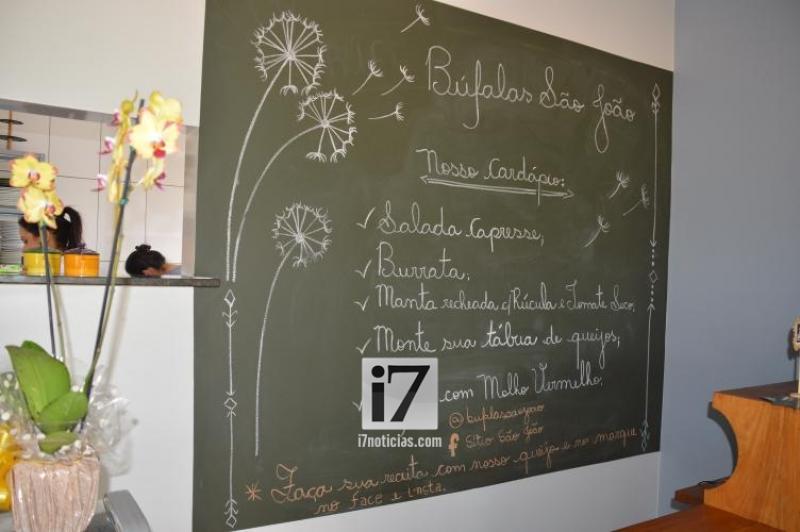 Búfalas São João
Nosso Cardápio:
Salada Capresse;
Burrata;
Manta recheada c/Rúcula e Tomate Seco;
Monte sua tábua de queijos;
com Molho Vermelho.
i7
i7noticias.com
Sítio São João
* Faça sua receita com nosso queijo e nos marque
no face e insta.